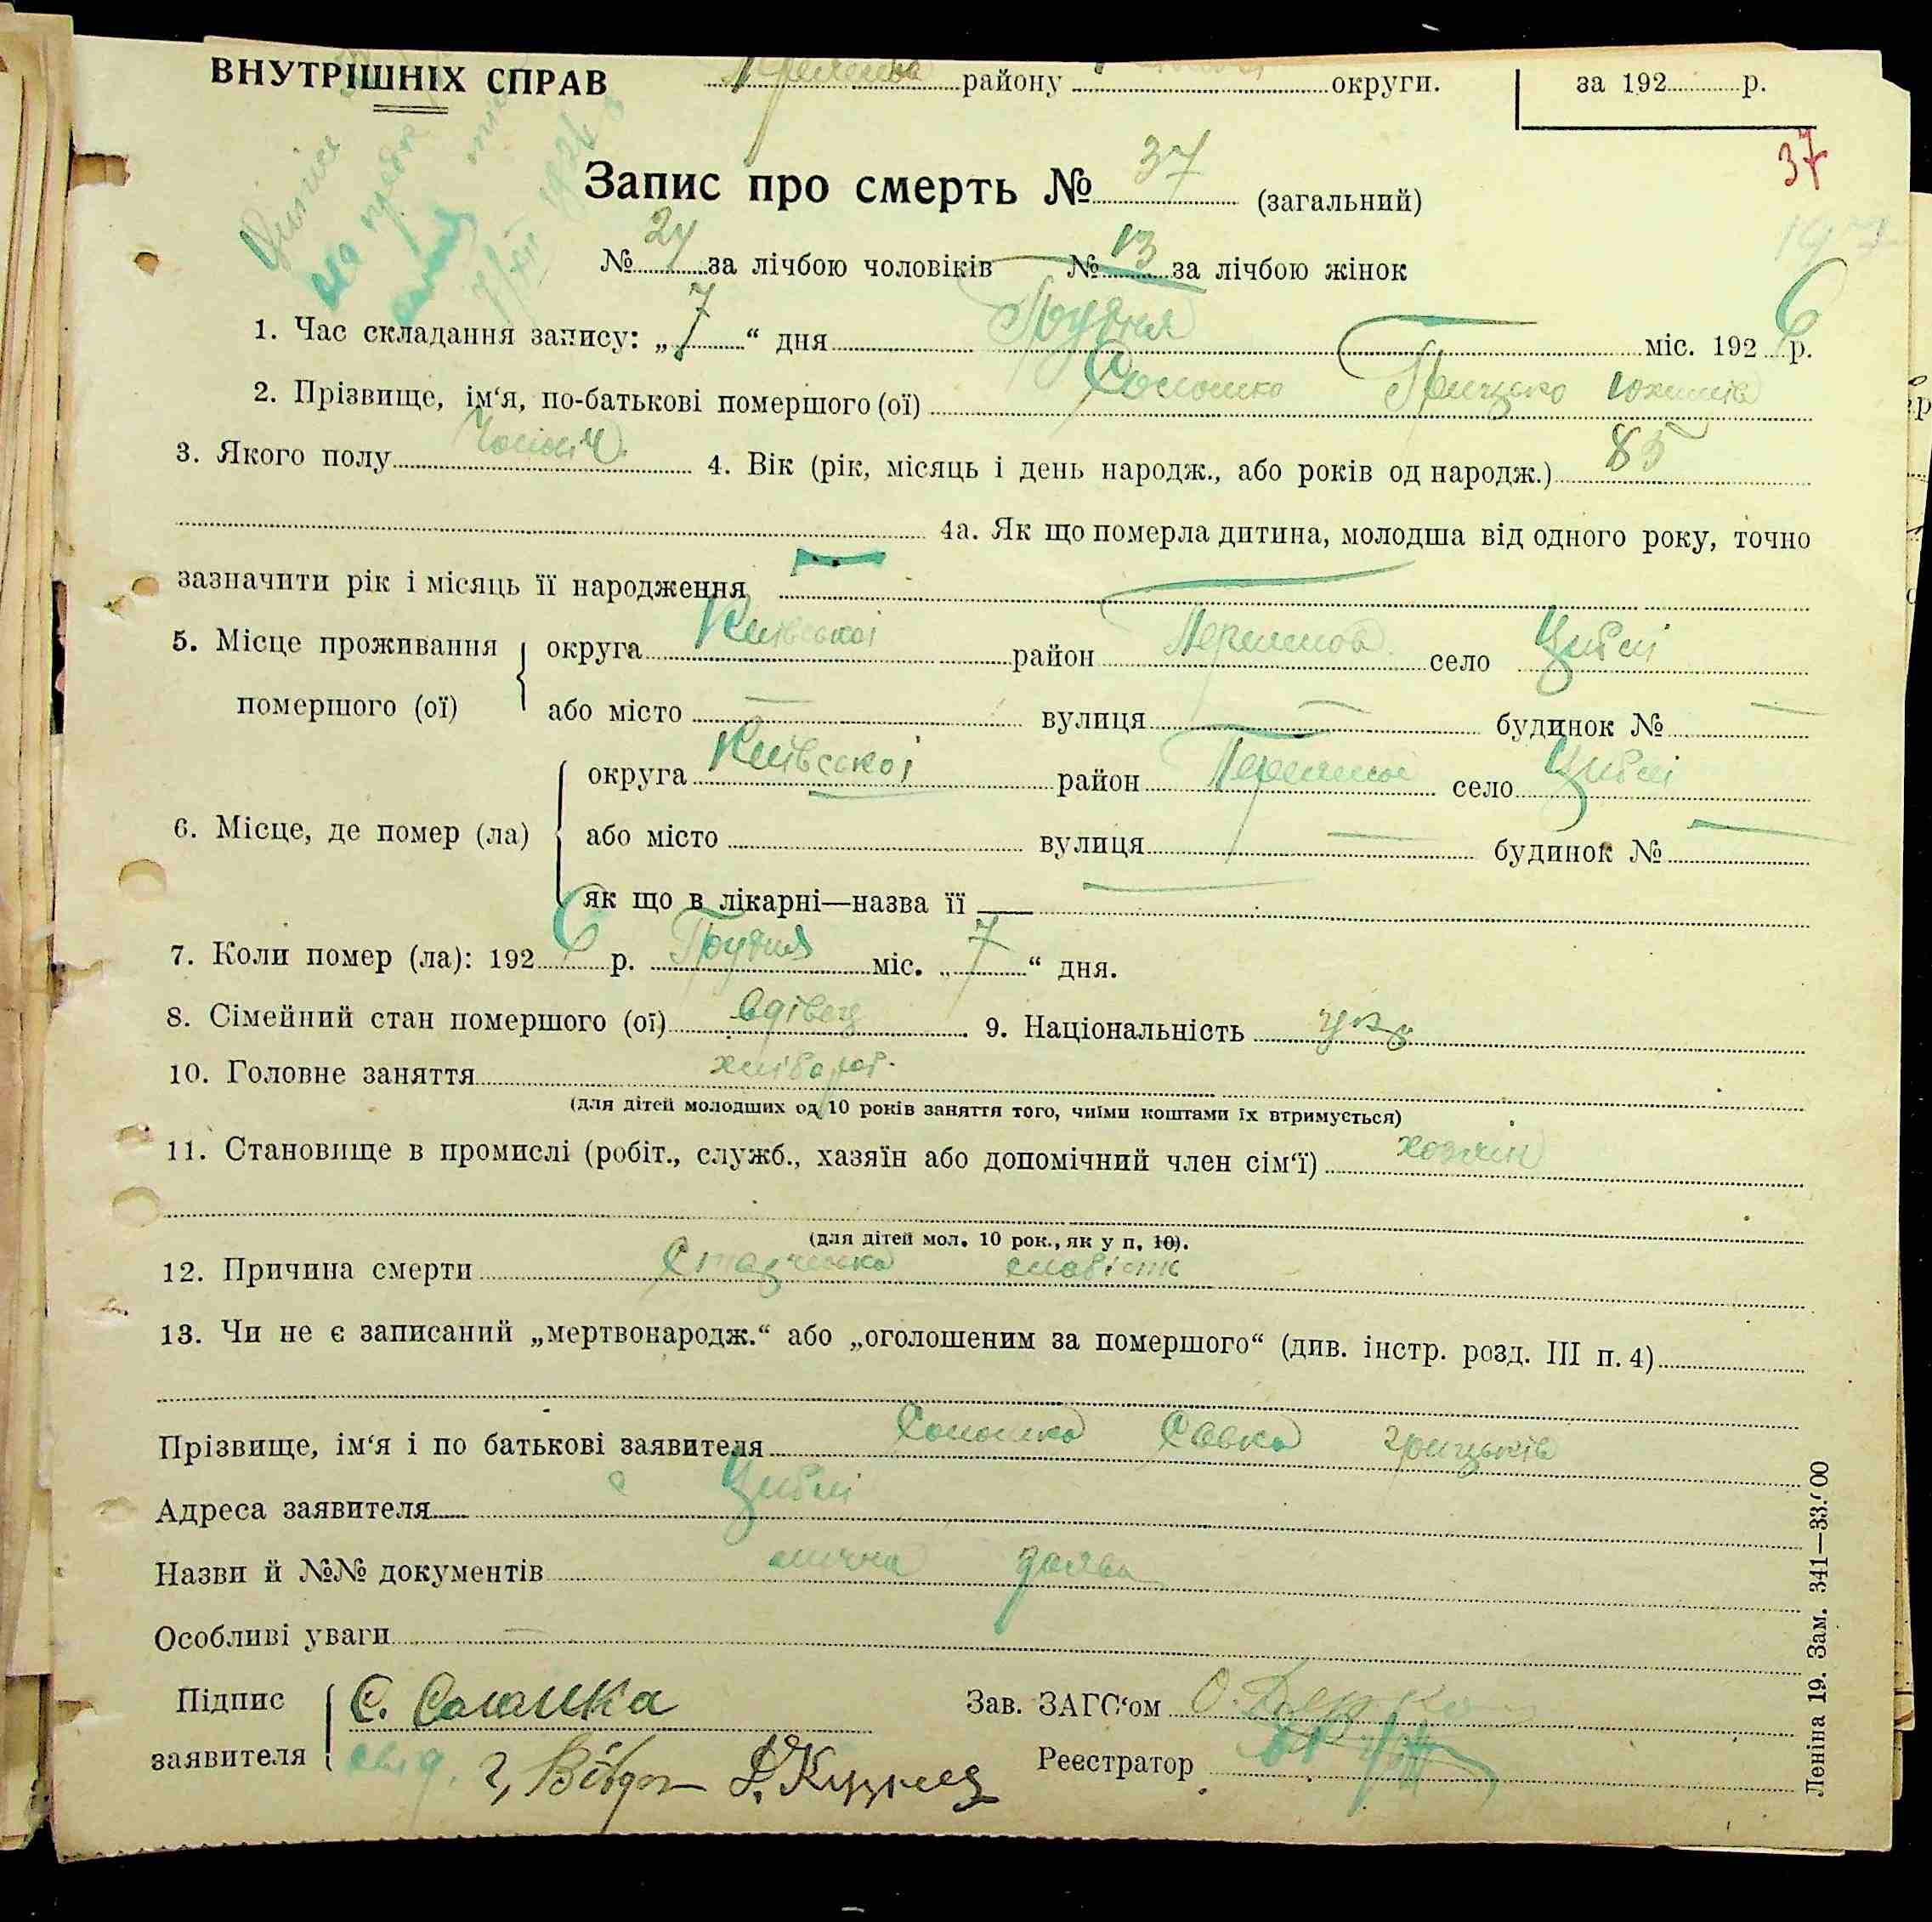 ВНУТРІШНІХ СПРАВ району округи. за 192 р.
37
Запис про смерть № 37 (загальний)
№ 24 за лічбою чоловіків № 13 за лічбою жінок
1. Час складання запису: „7“ дня Грудня міс. 1926 р.
2. Прізвище, ім‘я, по-батькові помершого (ої) Солошко Грицько Юхимів
3. Якого полу Чоловіч. 4. Вік (рік, місяць і день народж., або років од народж.) 85
4а. Як що померла дитина, молодша від одного року, точно
зазначити рік і місяць її народження —
5. Місце проживання помершого (ої) округа Київської район Переяслов. село Циблі
або місто — вулиця — будинок № —
6. Місце, де помер (ла) округа Київської район село Циблі
або місто вулиця — будинок № —
як що в лікарні—назва її —
7. Коли помер (ла): 1926 р. Грудня міс. „7“ дня.
8. Сімейний стан помершого (ої) вдівець 9. Національність укр
10. Головне заняття хлібороб.
(для дітей молодших од 10 років заняття того, чиїми коштами їх втримується)
11. Становище в промислі (робіт., служб., хазяїн або допомічний член сім‘ї) хозяїн
(для дітей мол. 10 рок., як у п. 10).
12. Причина смерти Старческа слабість
13. Чи не є записаний „мертвонародж.“ або „оголошеним за помершого“ (див. інстр. розд. III п. 4)
Прізвище, ім‘я і по батькові заявителя Солошко Савка Грицьків
Адреса заявителя с Циблі
Назви й №№ документів лична
Особливі уваги —
Підпис заявителя С. Солошка Зав. ЗАГС‘ом О.
Реєстратор
Леніна 19. Зам. 341—33.000